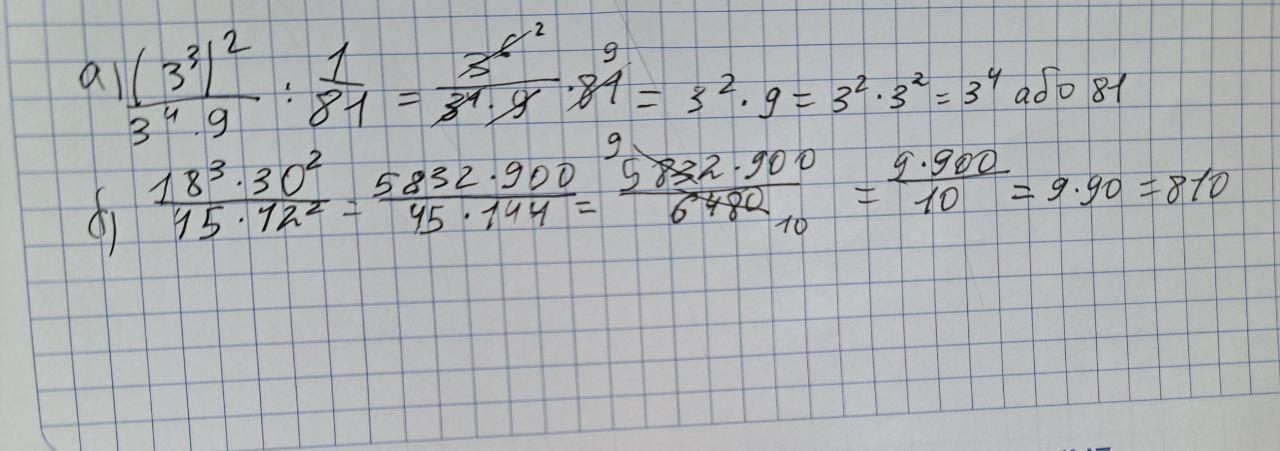 а) (3³)² / 3⁴ · 9 : 1/81 = 3⁶ ² / 3⁴ · 9 · 81 9 = 3² · 9 = 3² · 3² = 3⁴ або 81
б) 18³ · 30² / 45 · 12² = 5832 · 900 / 45 · 144 = 9 5832 · 900 / 6480 10 = 9 · 900 / 10 = 9 · 90 = 810